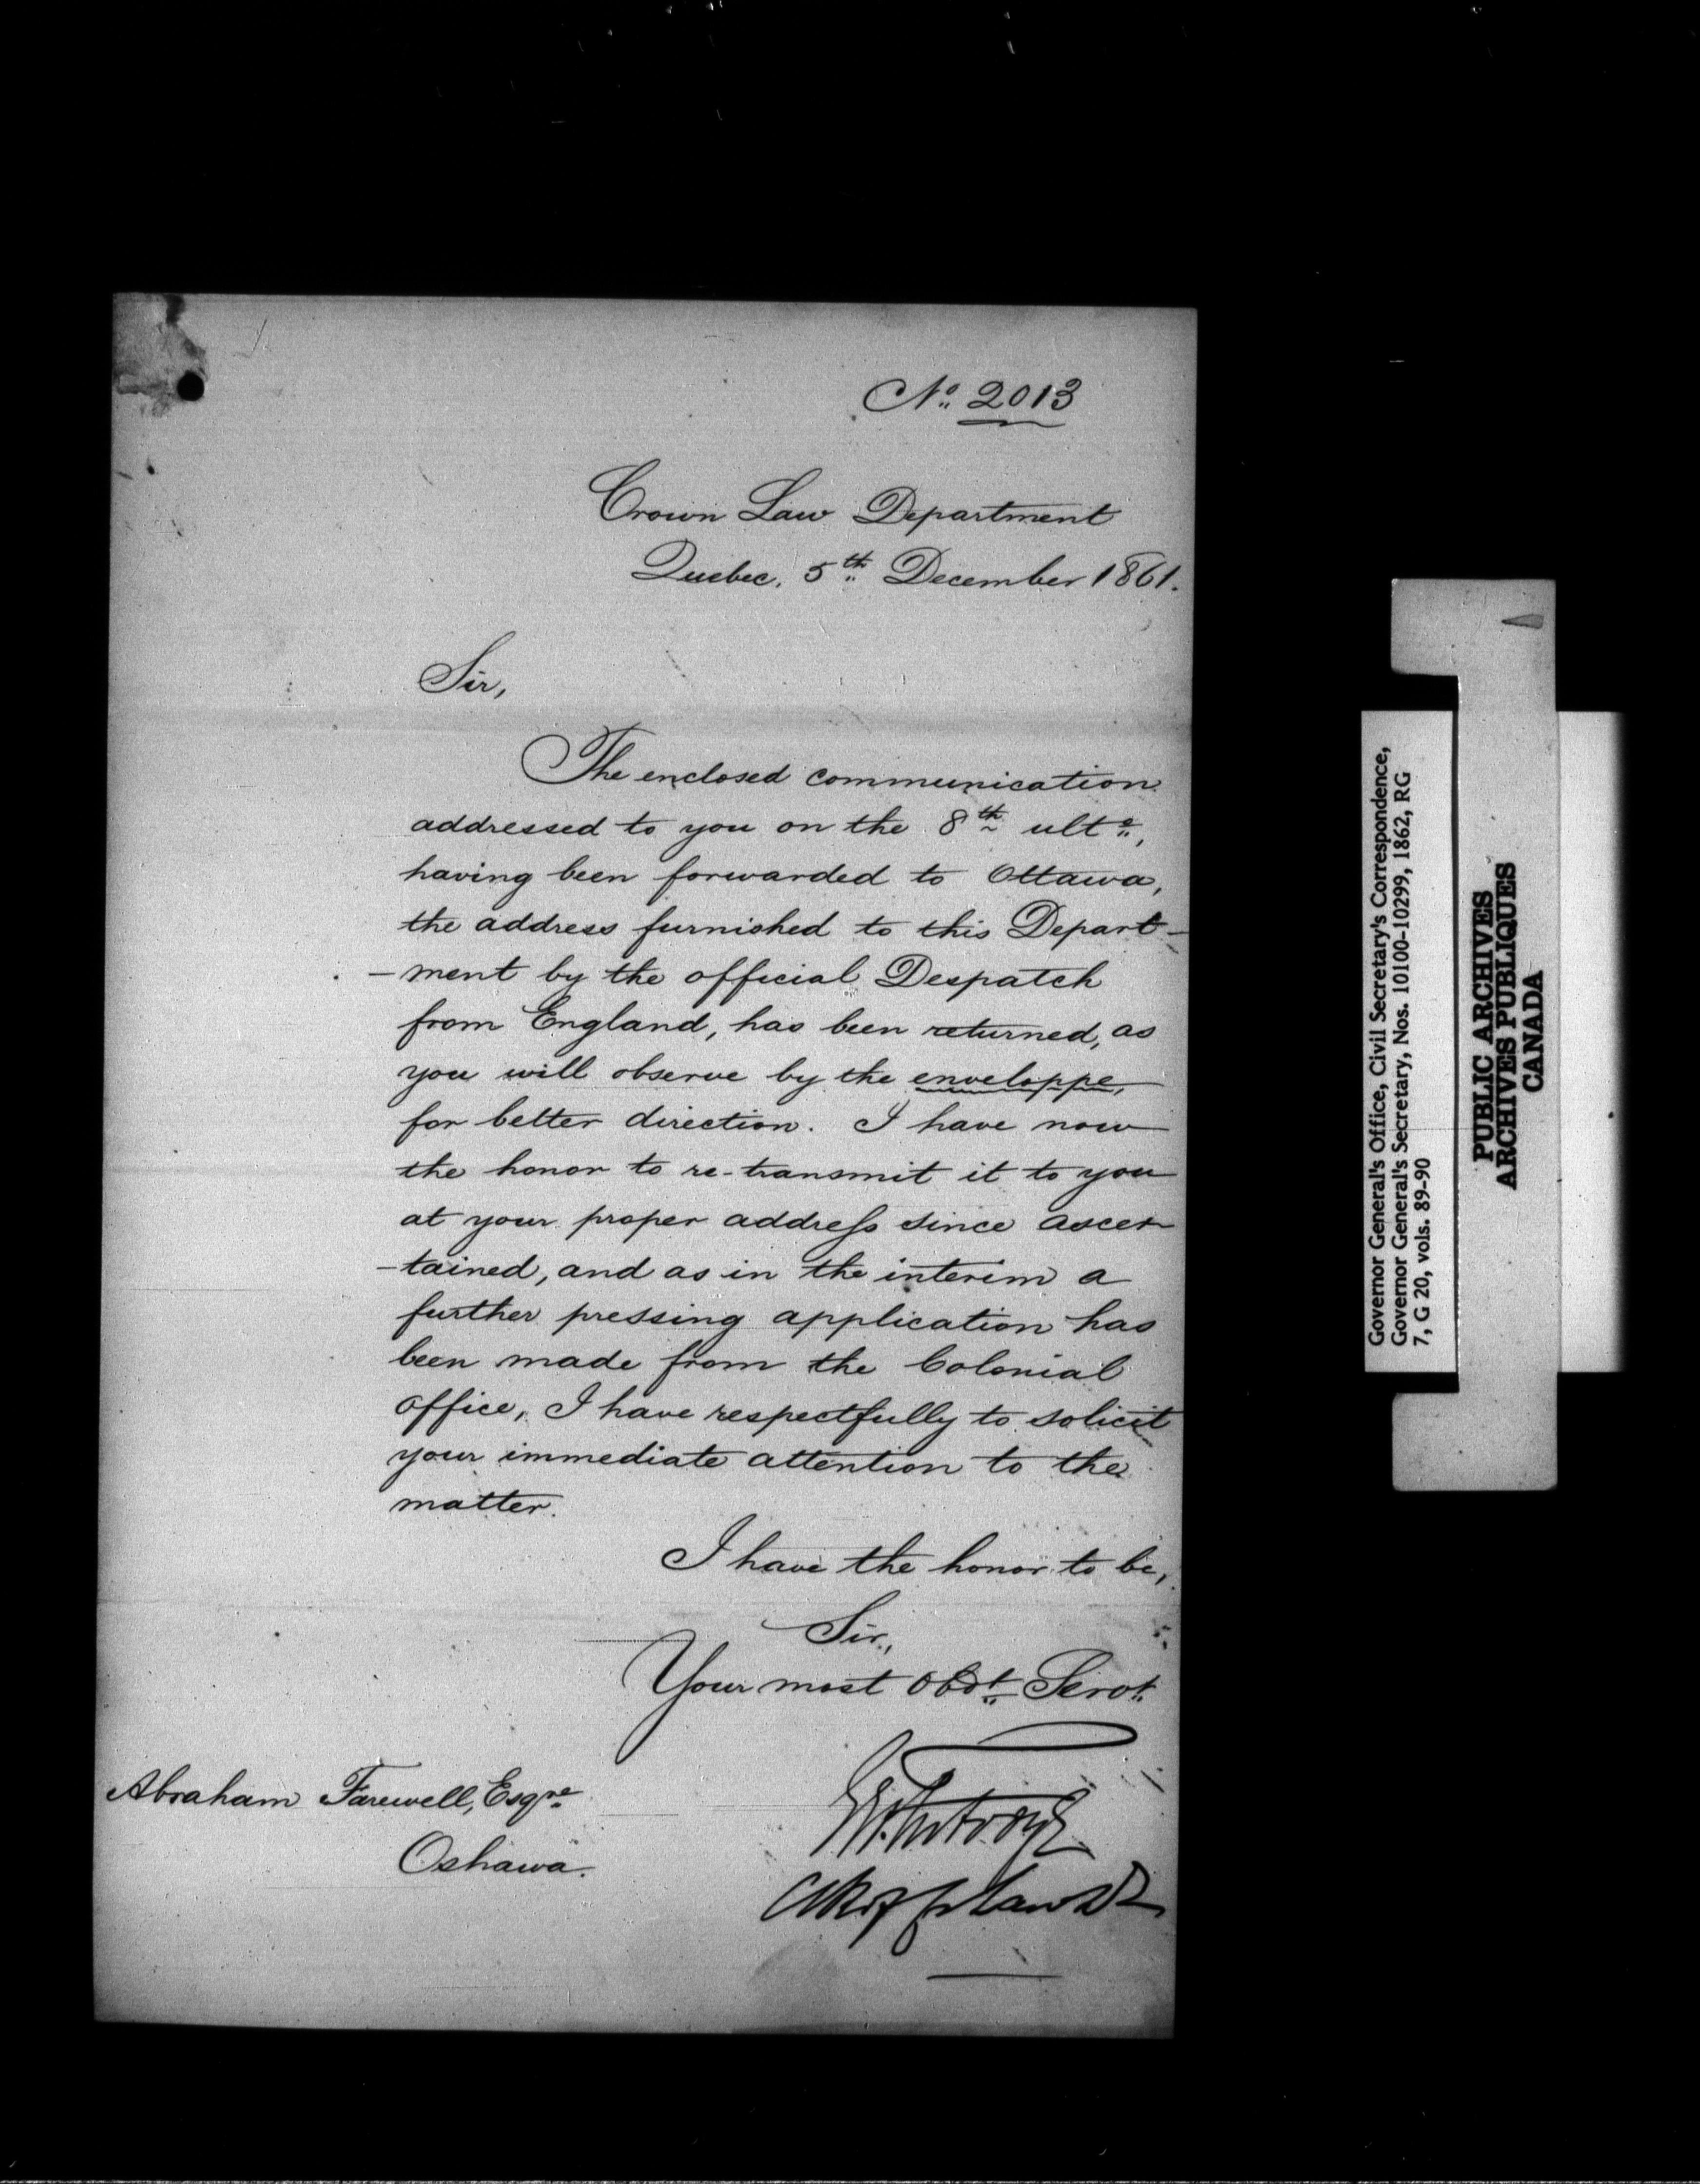 No. 2013
Crown Law Department
Quebec, 5th December 1861.
Sir,
The enclosed communication
addressed to you on the 8th ulto.,
having been forwarded to Ottawa,
the address furnished to this Depart-
-ment by the official Despatch
from England, has been returned, as
you will observe by the enveloppe,
for better direction. I have now
the honor to re-transmit it to you
at your proper address since ascer
-tained, and as in the interim a
further pressing application has
been made from the Colonial
Office, I have respectfully to solicit
your immediate attention to the
matter.
I have the honor to be,
Sir,
Your most Obdt. Servt.
Abraham Farewell, Esqre.
Oshawa.
Governor General's Office, Civil Secretary's Correspondence,
Governor General's Secretary, Nos. 10100-10299, 1862, RG
7, G 20, vols. 89-90
PUBLIC ARCHIVES
ARCHIVES PUBLIQUES
CANADA